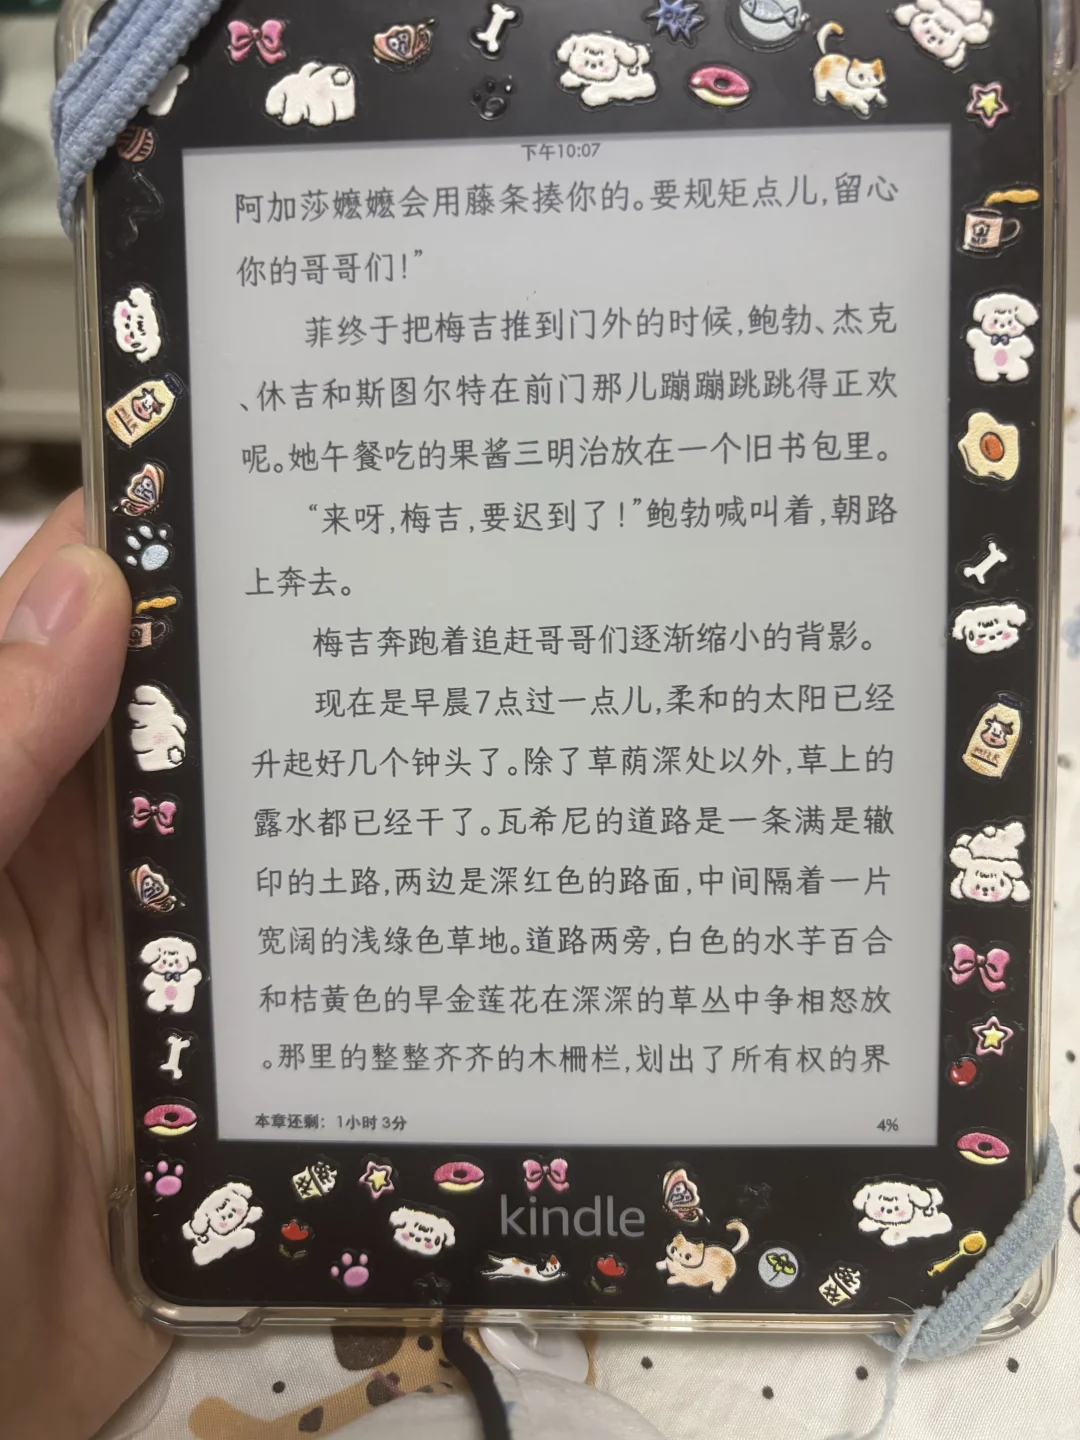 下午10:07
阿加莎嬷嬷会用藤条揍你的。要规矩点儿,留心
你的哥哥们!”
菲终于把梅吉推到门外的时候,鲍勃、杰克
、休吉和斯图尔特在前门那儿蹦蹦跳跳得正欢
呢。她午餐吃的果酱三明治放在一个旧书包里。
“来呀,梅吉,要迟到了!”鲍勃喊叫着,朝路
上奔去。
梅吉奔跑着追赶哥哥们逐渐缩小的背影。
现在是早晨7点过一点儿,柔和的太阳已经
升起好几个钟头了。除了草荫深处以外,草上的
露水都已经干了。瓦希尼的道路是一条满是辙
印的土路,两边是深红色的路面,中间隔着一片
宽阔的浅绿色草地。道路两旁,白色的水芋百合
和桔黄色的旱金莲花在深深的草丛中争相怒放
。那里的整整齐齐的木栅栏,划出了所有权的界
本章还剩：1小时 3分
4%
kindle
MILK
MILK